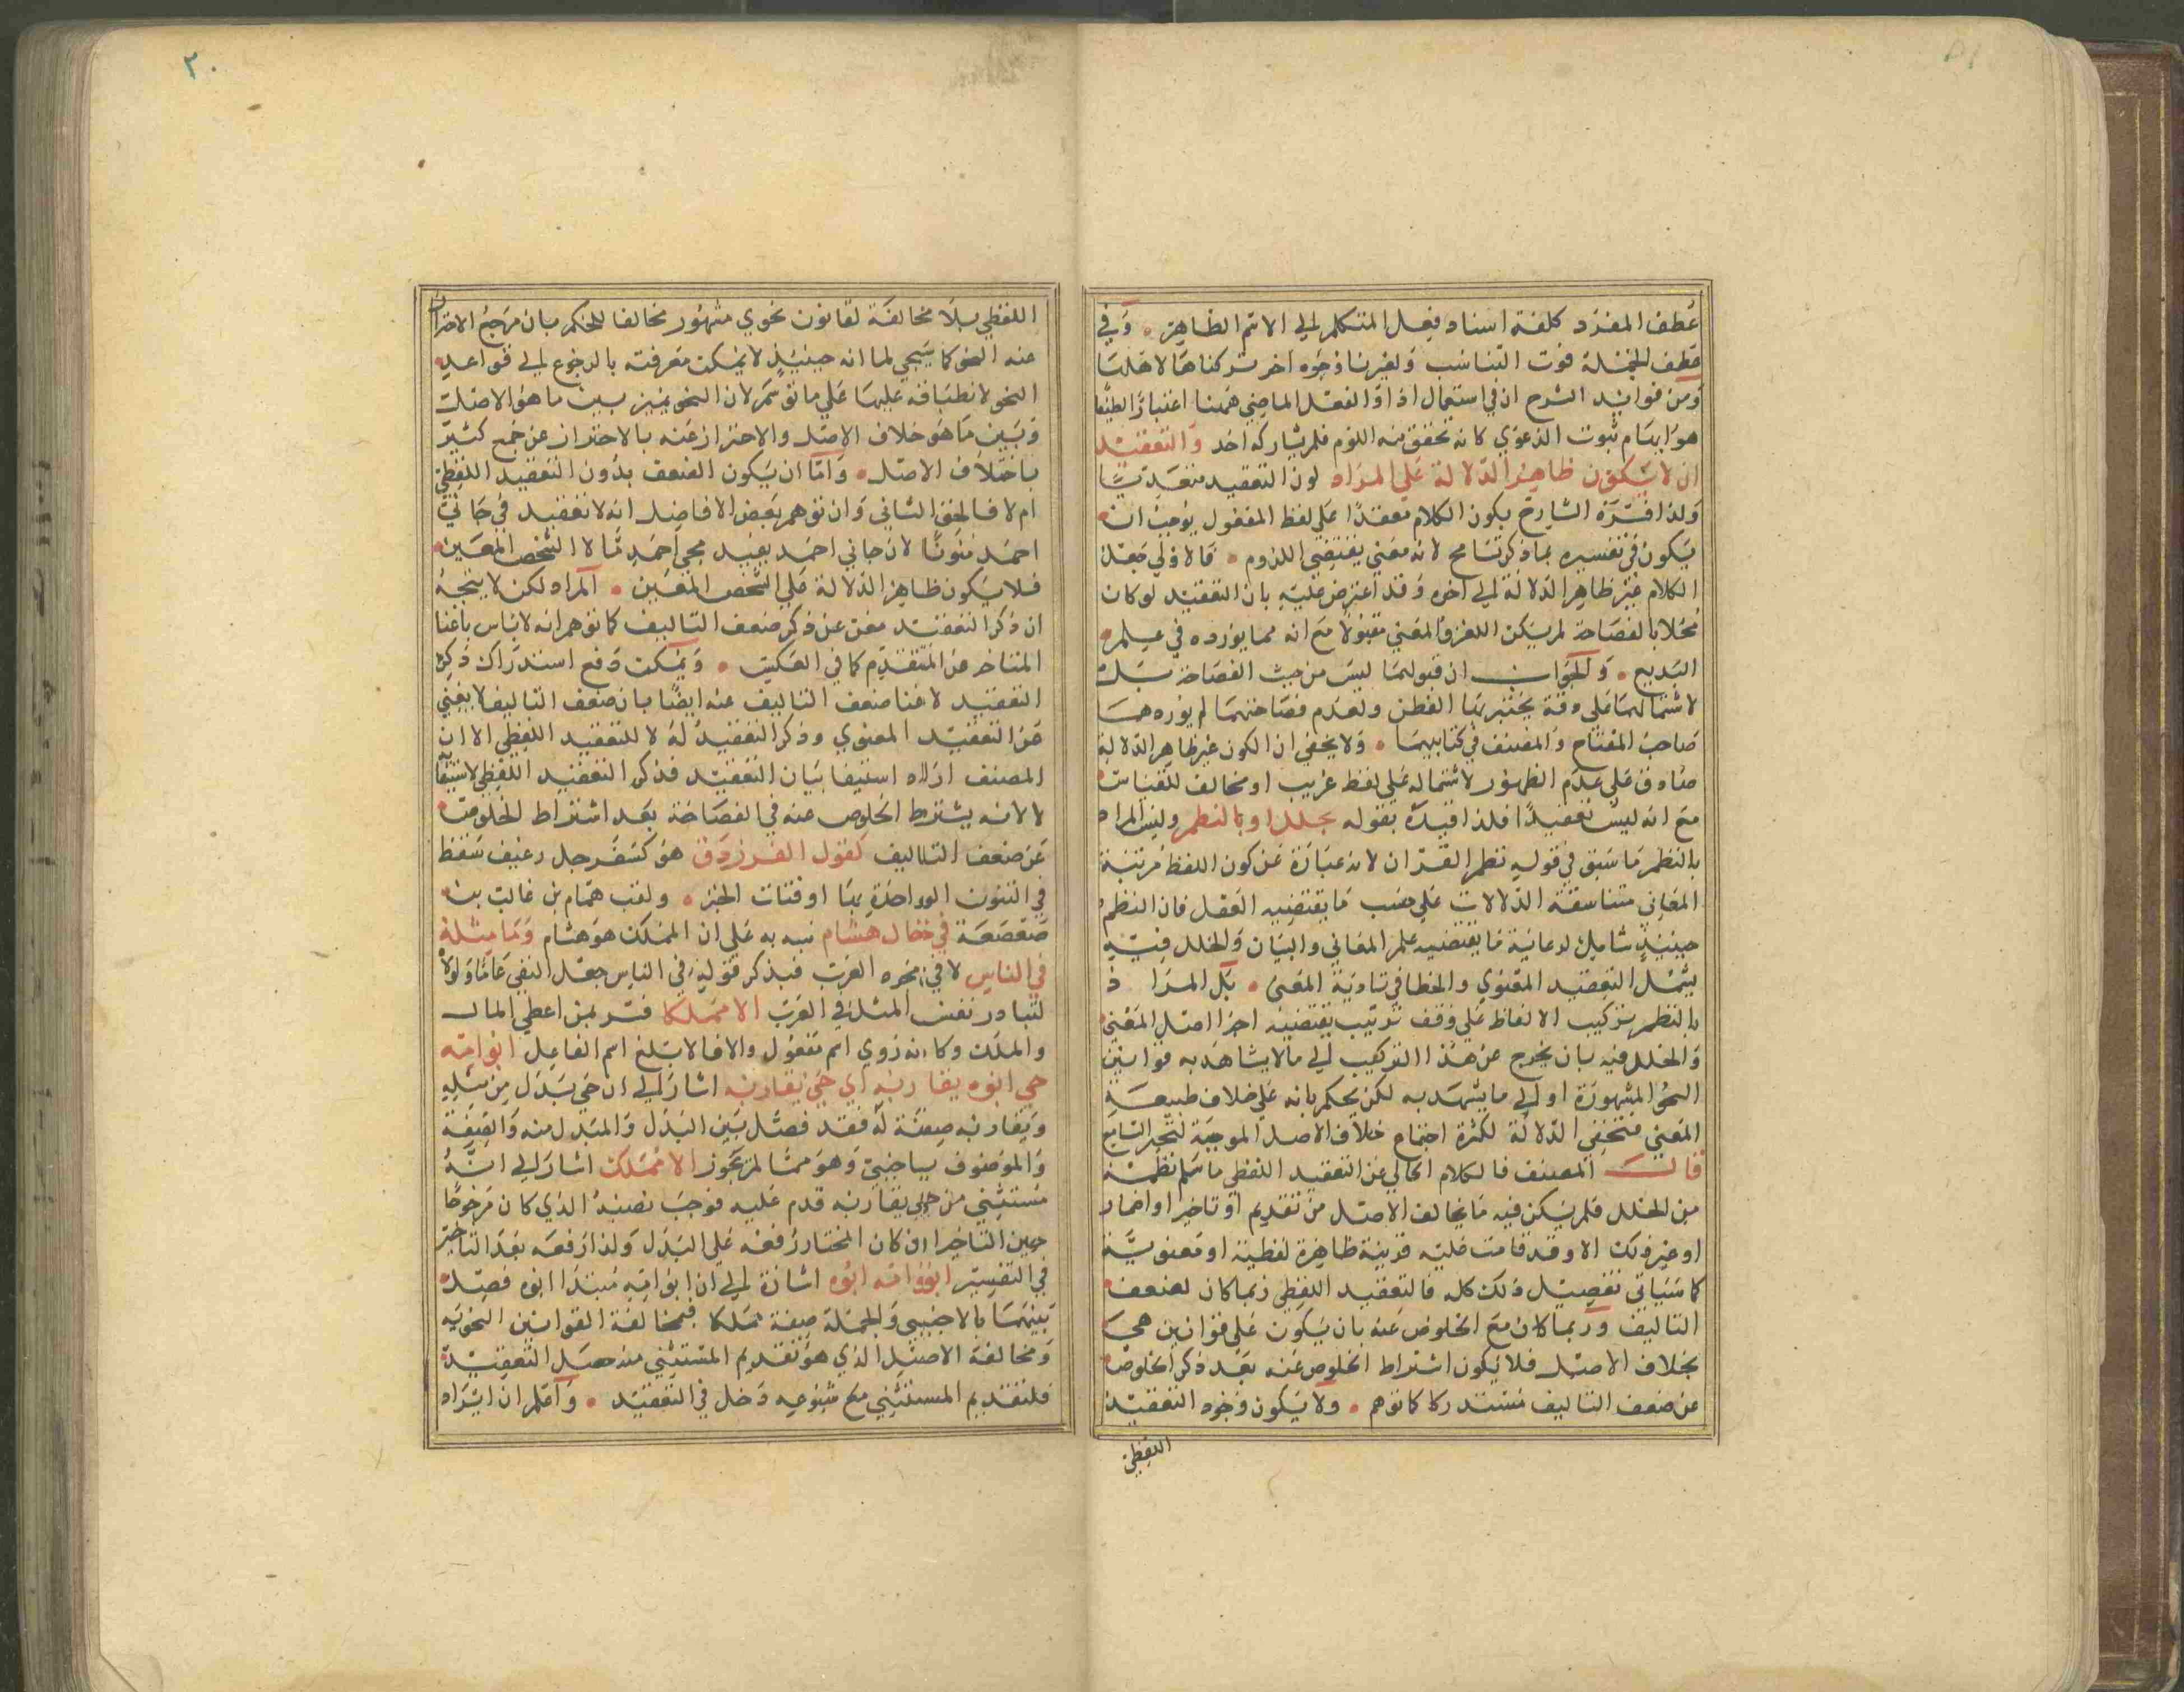 عطف المفرد كلفة اسناد فعل المتكلم الى الاسم الظاهر وفي
عطف الجملة فوت التناسب ولغيرنا وجوه اخر تركناها لاهلها
ومن فوائد الشرح ان في استعمال اذا والفعل الماضي ههنا اعتبارا لطيفا
هو ايهام ثبوت الدعوى كانه تحقق منه اللوم فلم يشاركه احد والتعقيد
ان لا يكون ظاهر الدلالة على المراد لون التعقيد متعديا
ولذا فسره الشارح بكون الكلام معقدا على لفظ المفعول يوجب ان
يكون في تفسيره بما ذكر تسامح لانه معنى يقتضي اللزوم فالاولى جعل
الكلام غير ظاهر الدلالة الى اخره وقد اعترض عليه بان التعقيد لو كان
مخلا بالفصاحة لم يكن اللغز والمعمى مقبولا مع انه مما يورده في علم
البديع والجواب ان قبولهما ليس من حيث الفصاحة بل
لاشتمالهما على دقة يختبر بها الفطن ولعدم فصاحتهما لم يوردهما
صاحب المفتاح والمصنف في كتابيهما ولا يخفى ان الكون غير ظاهر الدلالة
صادق على عدم الظهور لاشتماله على لفظ غريب او مخالف للقياس
مع انه ليس تعقيدا فلذا قيده بقوله بخلل اما بالنظم وليس المراد
بالنظم ما سبق في قوله نظم القران لانه عبارة عن كون اللفظ مرتبة
المعاني متناسقة الدلالات على حسب ما يقتضيه العقل فان النظم
حينئذ شامل لرعاية ما يقتضيه علم المعاني والبيان والخلل فيه
يشمل التعقيد المعنوي والخطا في تادية المعنى بل المراد
بالنظم تركيب الالفاظ على وفق ترتيب يقتضيه اجرا اصل المعنى
والخلل فيه بان يخرج عن هذا التركيب الى ما لا يشاهد به قوانين
النحو المشهورة او الى ما يشهد به لكن يحكم بانه على خلاف طبيعة
المعنى فتخفى الدلالة لكثرة اجتماع خلاف الاصل الموجبة لتحير السامع
قال المصنف فالكلام الخالي عن التعقيد اللفظي ما سلم نظمه
من الخلل فلم يكن فيه ما يخالف الاصل من تقديم او تاخير او اضمار
او غير ذلك الا وقد قامت عليه قرينة ظاهرة لفظية او معنوية
كما سياتي تفصيل ذلك كله فالتعقيد اللفظي ربما كان لضعف
التاليف وربما كان مع الخلوص عنه بان يكون على قوانين هي
بخلاف الاصل فلا يكون اشتراط الخلوص عنه بعد ذكر الخلوص
عن ضعف التاليف مستدركا كما توهم ولا يكون وجوه التعقيد
اللفظي
٢٠
اللفظي بلا مخالفة لقانون نحوي مشهور مخالفا للحكم بان مرجع الاحتراز
عنه النحو كما سيجي لما انه حينئذ لا يمكن معرفته بالرجوع الى قواعد
النحو لانطباقه عليها على ما توهم لان النحو يميز بين ما هو الاصل
وبين ما هو خلاف الاصل والاحتراز عنه بالاحتراز عن جمع كثير
باختلاف الاصل واما ان يكون الضعف بدون التعقيد اللفظي
ام لا فالحق الثاني وان توهم بعض الافاضل انه لا تعقيد في جاني
احمد منونا لان جاني احمد يفيد مجي احمد ما لا الشخص المعين
فلا يكون ظاهر الدلالة على الشخص المعين المراد لكن لا يتجه
ان ذكر التعقيد مغن عن ذكر ضعف التاليف كما توهم انه لا باس باغنا
المتاخر عن المتقدم كما في العكس ويمكن دفع استدراك ذكر
التعقيد لاغنا ضعف التاليف عنه ايضا بان ضعف التاليف لا يغني
عن التعقيد المعنوي وذكر التعقيد له لا للتعقيد اللفظي الا ان
المصنف اراد استيفا بيان التعقيد فذكر التعقيد اللفظي لاستيفا
لا لانه يشترط الخلوص عنه في الفصاحة بعد اشتراط الخلوص
عن ضعف التاليف كقول الفرزدق هو كسفرجل رغيف سقط
في التنور الواحدة بها او فتات الخبز ولقب همام بن غالب بن
صعصعة في خال هشام نبه به على ان المملك هو هشام وما مثله
في الناس لا في نحوه العرب فبذكر قوله في الناس جعل النفي عاما ولولا
لتبادر نفي المثل في العرب الا مملكا فسر بمن اعطي المال
والملك وكانه روي اسم مفعول والا فالابلغ اسم الفاعل ابو امه
حي ابوه يقاربه اي حي يقاربه اشار الى ان حي بدل من مثله
ويقاربه صفة له فقد فصل بين البدل والمبدل منه والصفة
والموصوف باجنبي وهو مما لم يجوز الا مملك اشار الى انه
مستثنى من حي يقاربه قدم عليه فوجب نصبه الذي كان مرجوحا
حين التاخر اذ كان المختار رفعه على البدل ولذا رفعه بعد التاخير
في التفسير ابو امه ابوه اشارة الى ان ابو امه مبتدا ابوه فصل
بينهما بالاجنبي والجملة صفة مملكا فمخالفة القوانين النحويه
ومخالفة الاصل الذي هو تقديم المستثنى منه حصل التعقيد
فلتقديم المستثنى مع شيوعه دخل في التعقيد واعلم ان ايراد